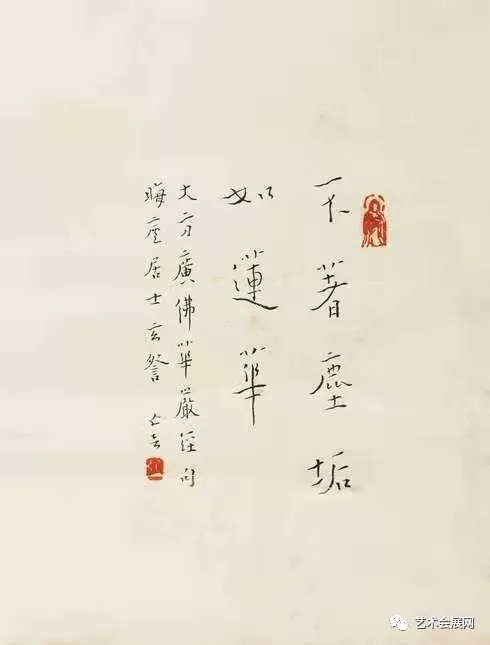 不著塵垢
如蓮華
大方廣佛華嚴經句
晦廬居士玄詧
艺术会展网